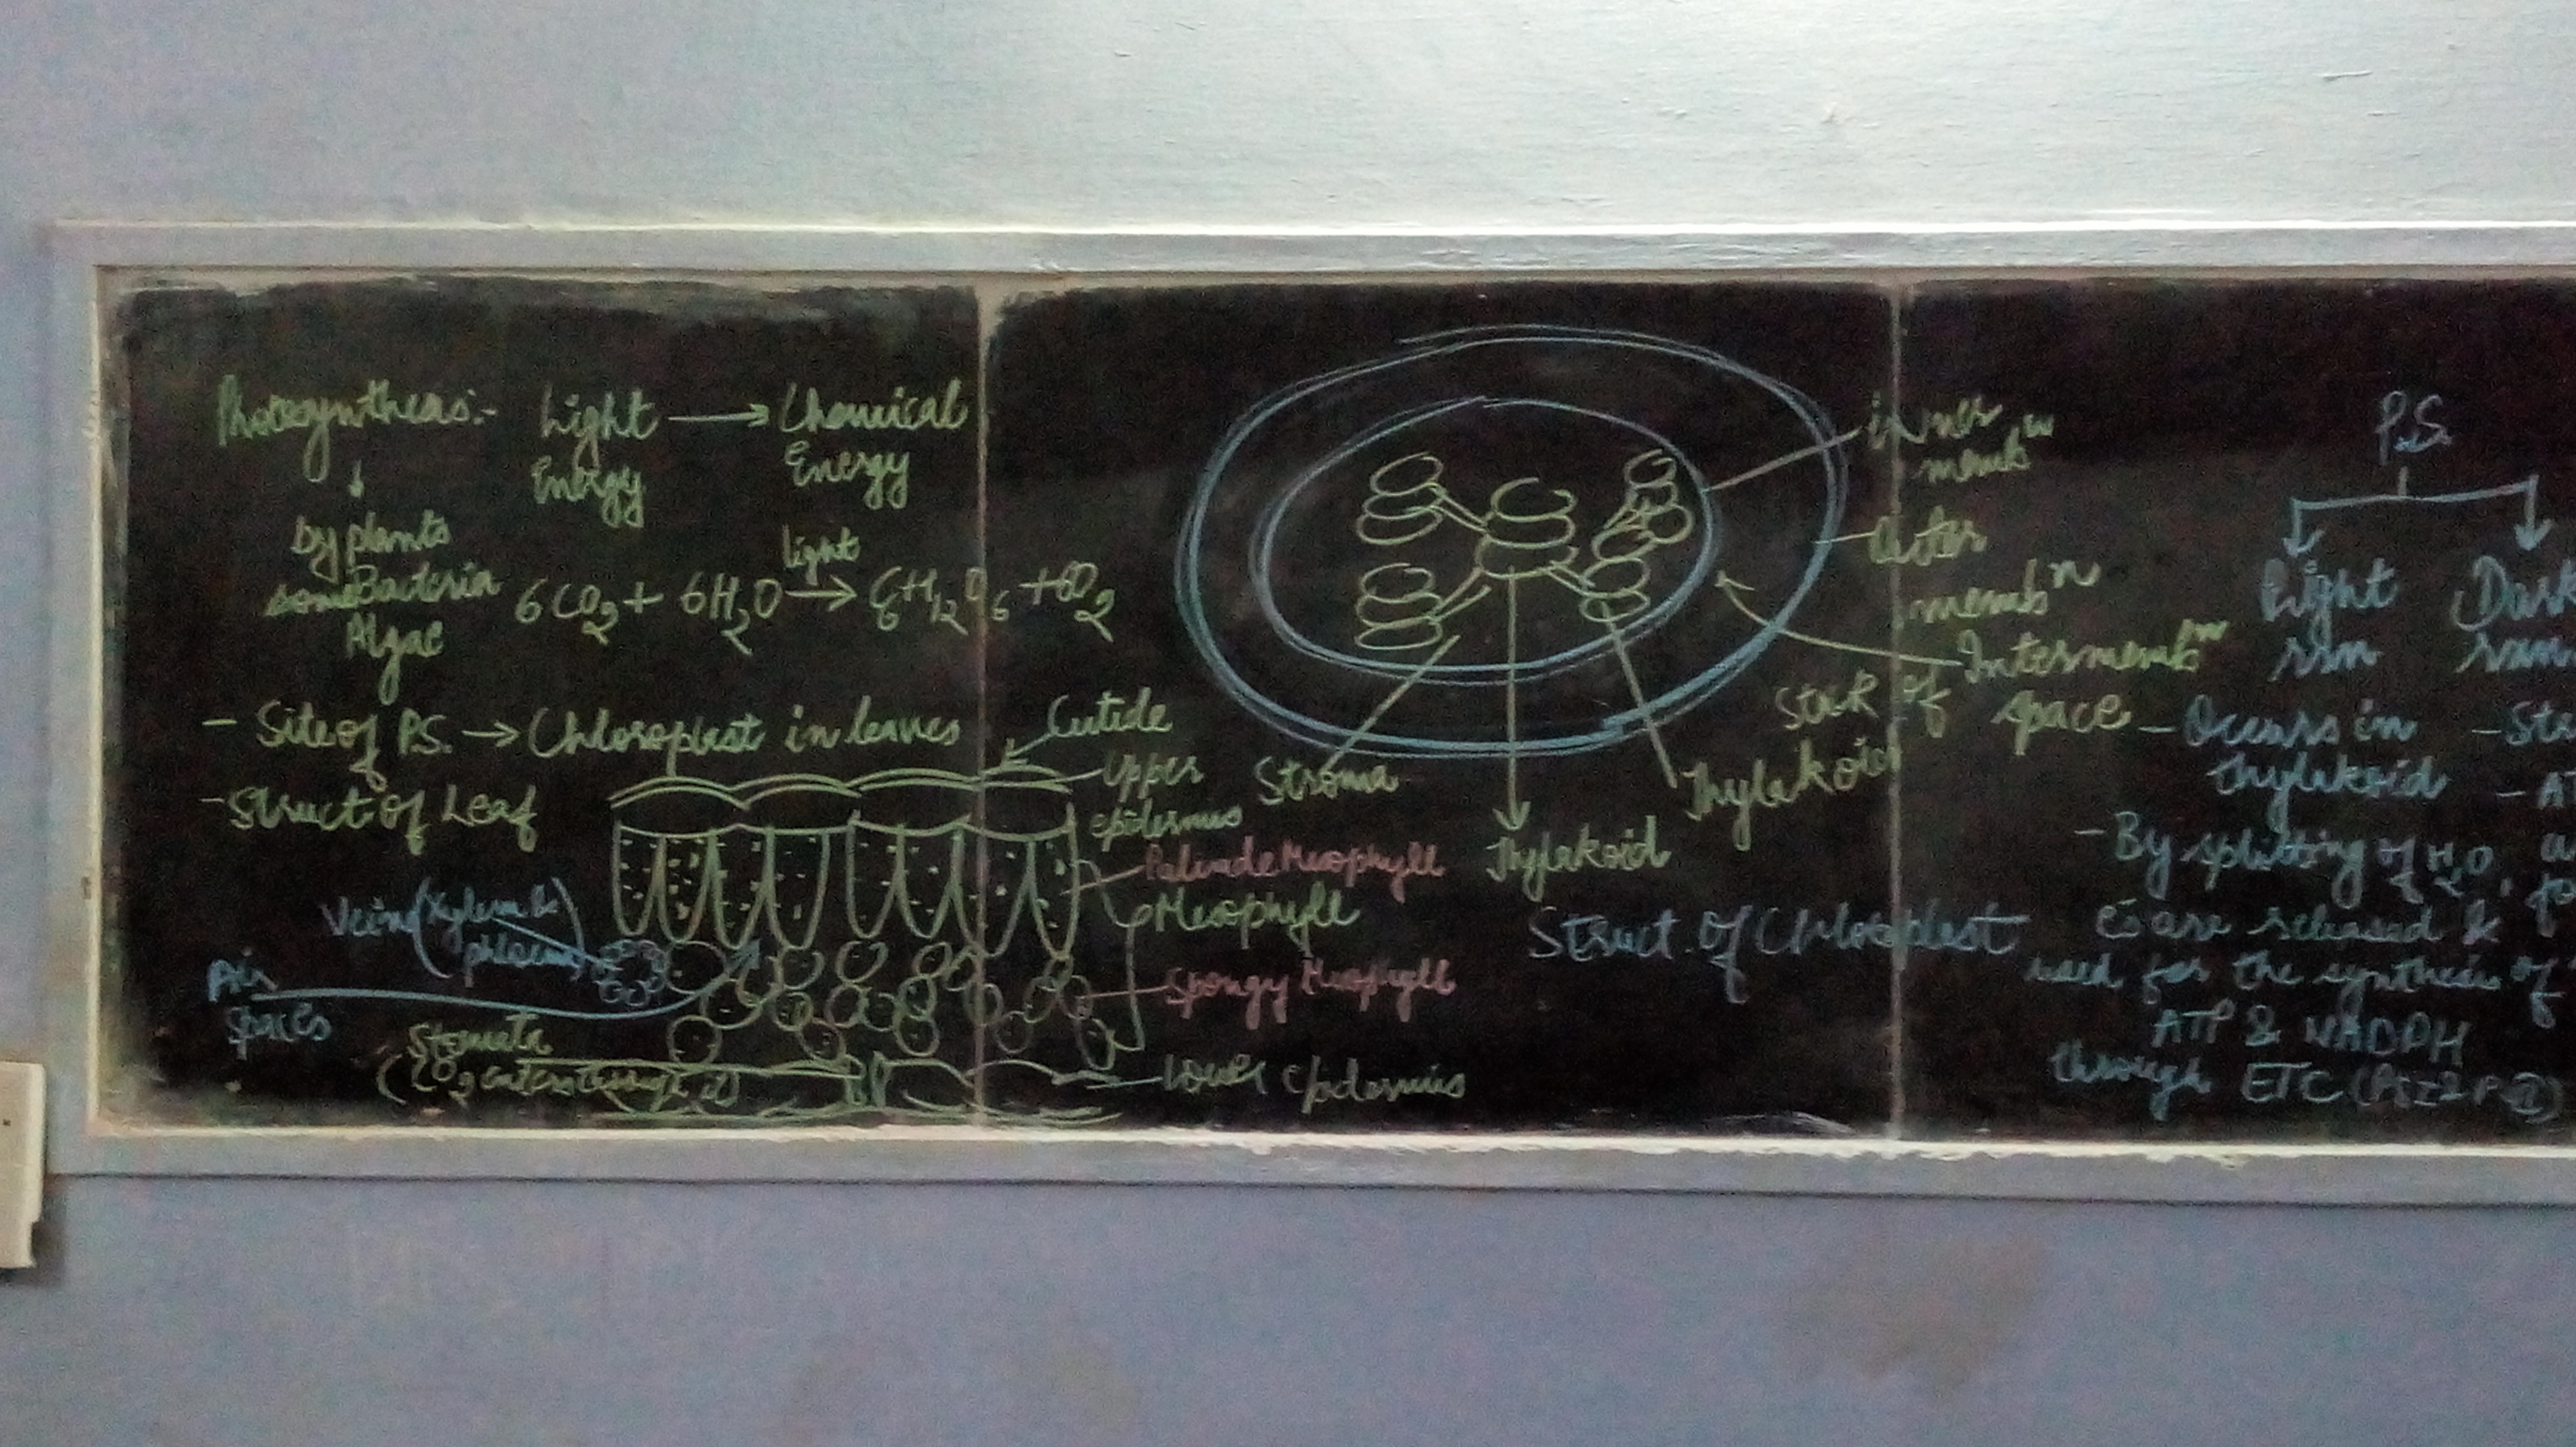 Photosynthesis:- Light → Chemical
Energy Energy
↓
by plants
some Bacteria
Algae
light
6CO₂ + 6H₂O → C₆H₁₂O₆ + 6O₂
- Site of P.S. → Chloroplast in leaves
- Struct of Leaf
Cuticle
Upper
epidermis
Palisade Mesophyll
Mesophyll
Spongy Mesophyll
Lower Epidermis
Veins (Xylem &
phloem)
Air
Spaces
Stomata
(CO₂ enters through it)
inner
memb^n
Outer
memb^n
Intermemb^n
space
Stack of
Thylakoid
Stroma
Thylakoid
Struct. of Chloroplast
P.S.
Light
rxn
- Occurs in
thylakoid
- By splitting of H₂O,
e⁻s are released &
used for the synthesis of
ATP & NADPH
through ETC
Dark